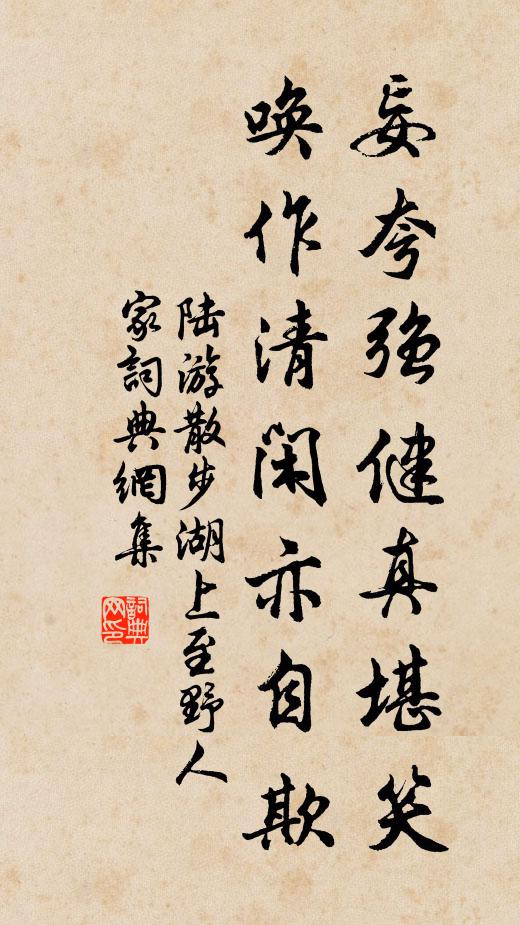 妄夸強健真堪笑
唤作清閑亦自欺
陆游散步湖上至野人
家詞典網集
詞典
网印